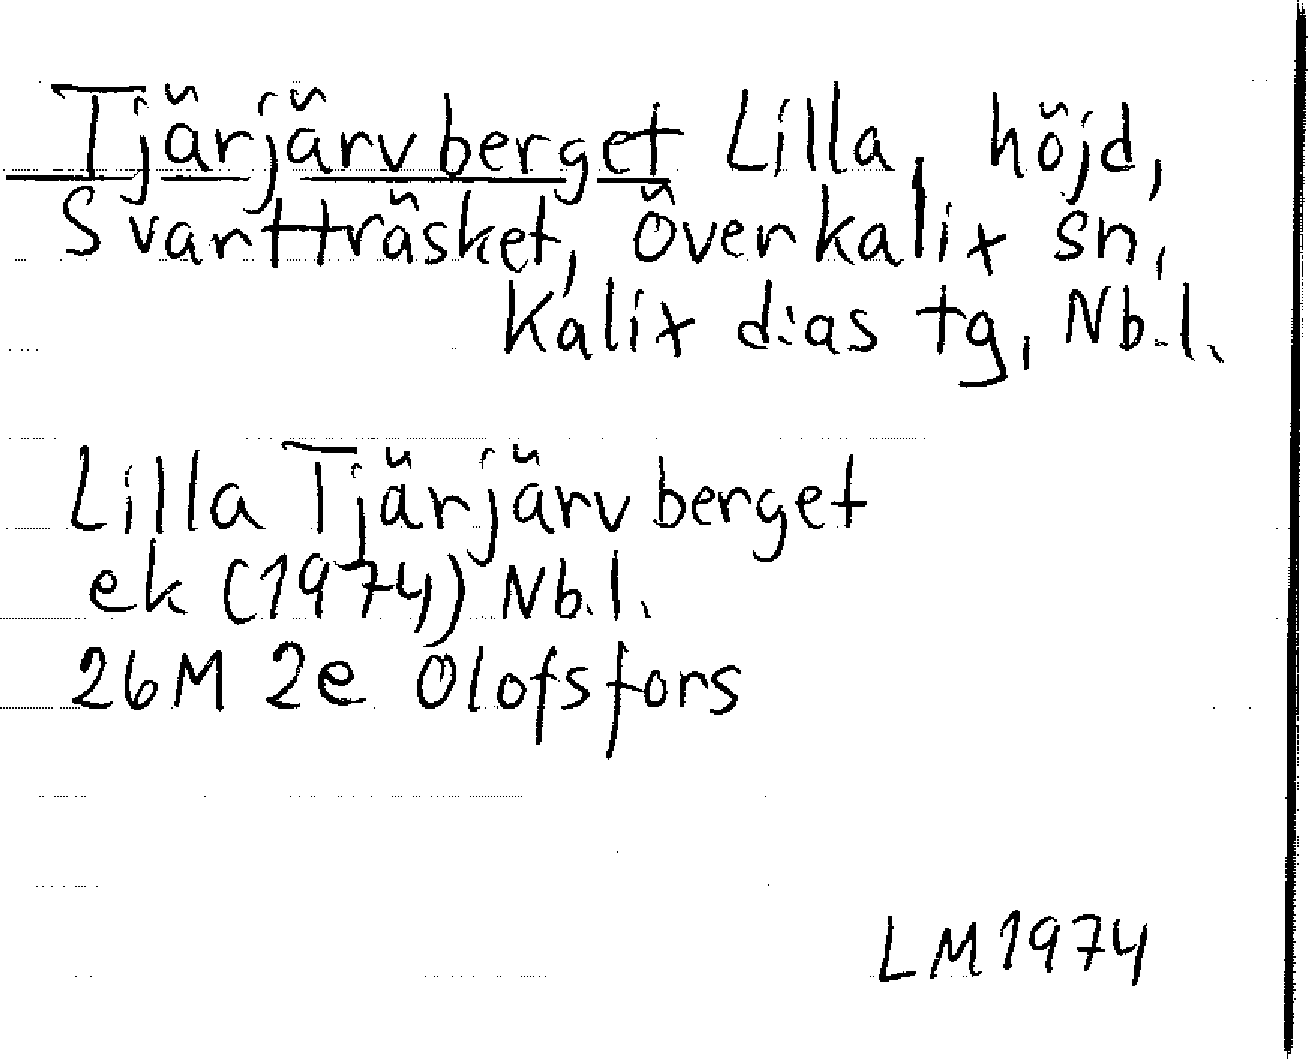 Tjärjärvberget Lilla, höjd,
Svartträsket, Överkalix sn,
Kalix d:as tg, Nb.l.
Lilla Tjärjärvberget
ek (1974) Nb.l.
26M 2e Olofsfors
LM 1974